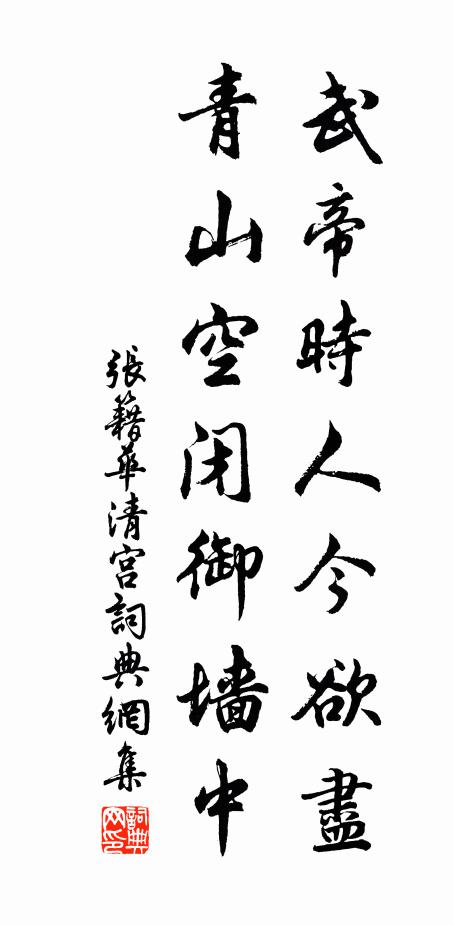 武帝時人今欲盡
青山空闭御墙中
張籍華清宫詞典網集
詞典网印